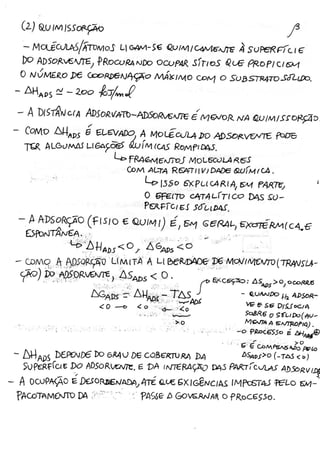 (2) QUIMISSORÇÃO
- MOLÉCULAS/ÁTOMOS LIGAM-SE QUIMICAMENTE À SUPERFÍCIE
DO ADSORVENTE, PROCURANDO OCUPAR SÍTIOS QUE PROPICIEM
O NÚMERO DE COORDENAÇÃO MÁXIMO COM O SUBSTRATO SÓLIDO.
- ΔHADS ≃ - 200 kJ/mol
- A DISTÂNCIA ADSORVATO-ADSORVENTE É MENOR NA QUIMISSORÇÃO
- COMO ΔHADS É ELEVADO, A MOLÉCULA DO ADSORVENTE PODE
TER ALGUMAS LIGAÇÕES QUÍMICAS ROMPIDAS.
↳ FRAGMENTOS MOLECULARES
COM ALTA REATIVIDADE QUÍMICA.
↳ ISSO EXPLICARIA, EM PARTE,
O EFEITO CATALÍTICO DAS SU-
PERFÍCIES SÓLIDAS.
- A ADSORÇÃO (FISIO E QUIMI) É, EM GERAL, EXOTÉRMICA E
ESPONTÂNEA.
↳ ΔHADS < 0, ΔGADS < 0
- COMO A ADSORÇÃO LIMITA A LIBERDADE DE MOVIMENTO (TRANSLA-
ÇÃO) DO ADSORVENTE, ΔSADS < 0.
EXCEÇÃO: ΔSADS > 0, OCORRE
ΔGADS = ΔHADS - TΔSADS
<0 <0 <0
>0
- QUANDO H2 ADSOR-
VE E SE DISSOCIA
SOBRE O SÓLIDO (AU-
MENTA A ENTROPIA).
→ O PROCESSO É ΔHADS
>0
E É COMPENSADO PELO
ΔSADS>0 (-TΔS <0)
- ΔHADS DEPENDE DO GRAU DE COBERTURA DA
SUPERFÍCIE DO ADSORVENTE. E DA INTERAÇÃO DAS PARTÍCULAS ADSORVIDAS
- A OCUPAÇÃO É DESORDENADA, ATÉ QUE EXIGÊNCIAS IMPOSTAS PELO EM-
PACOTAMENTO DA PASSE A GOVERNAR O PROCESSO.